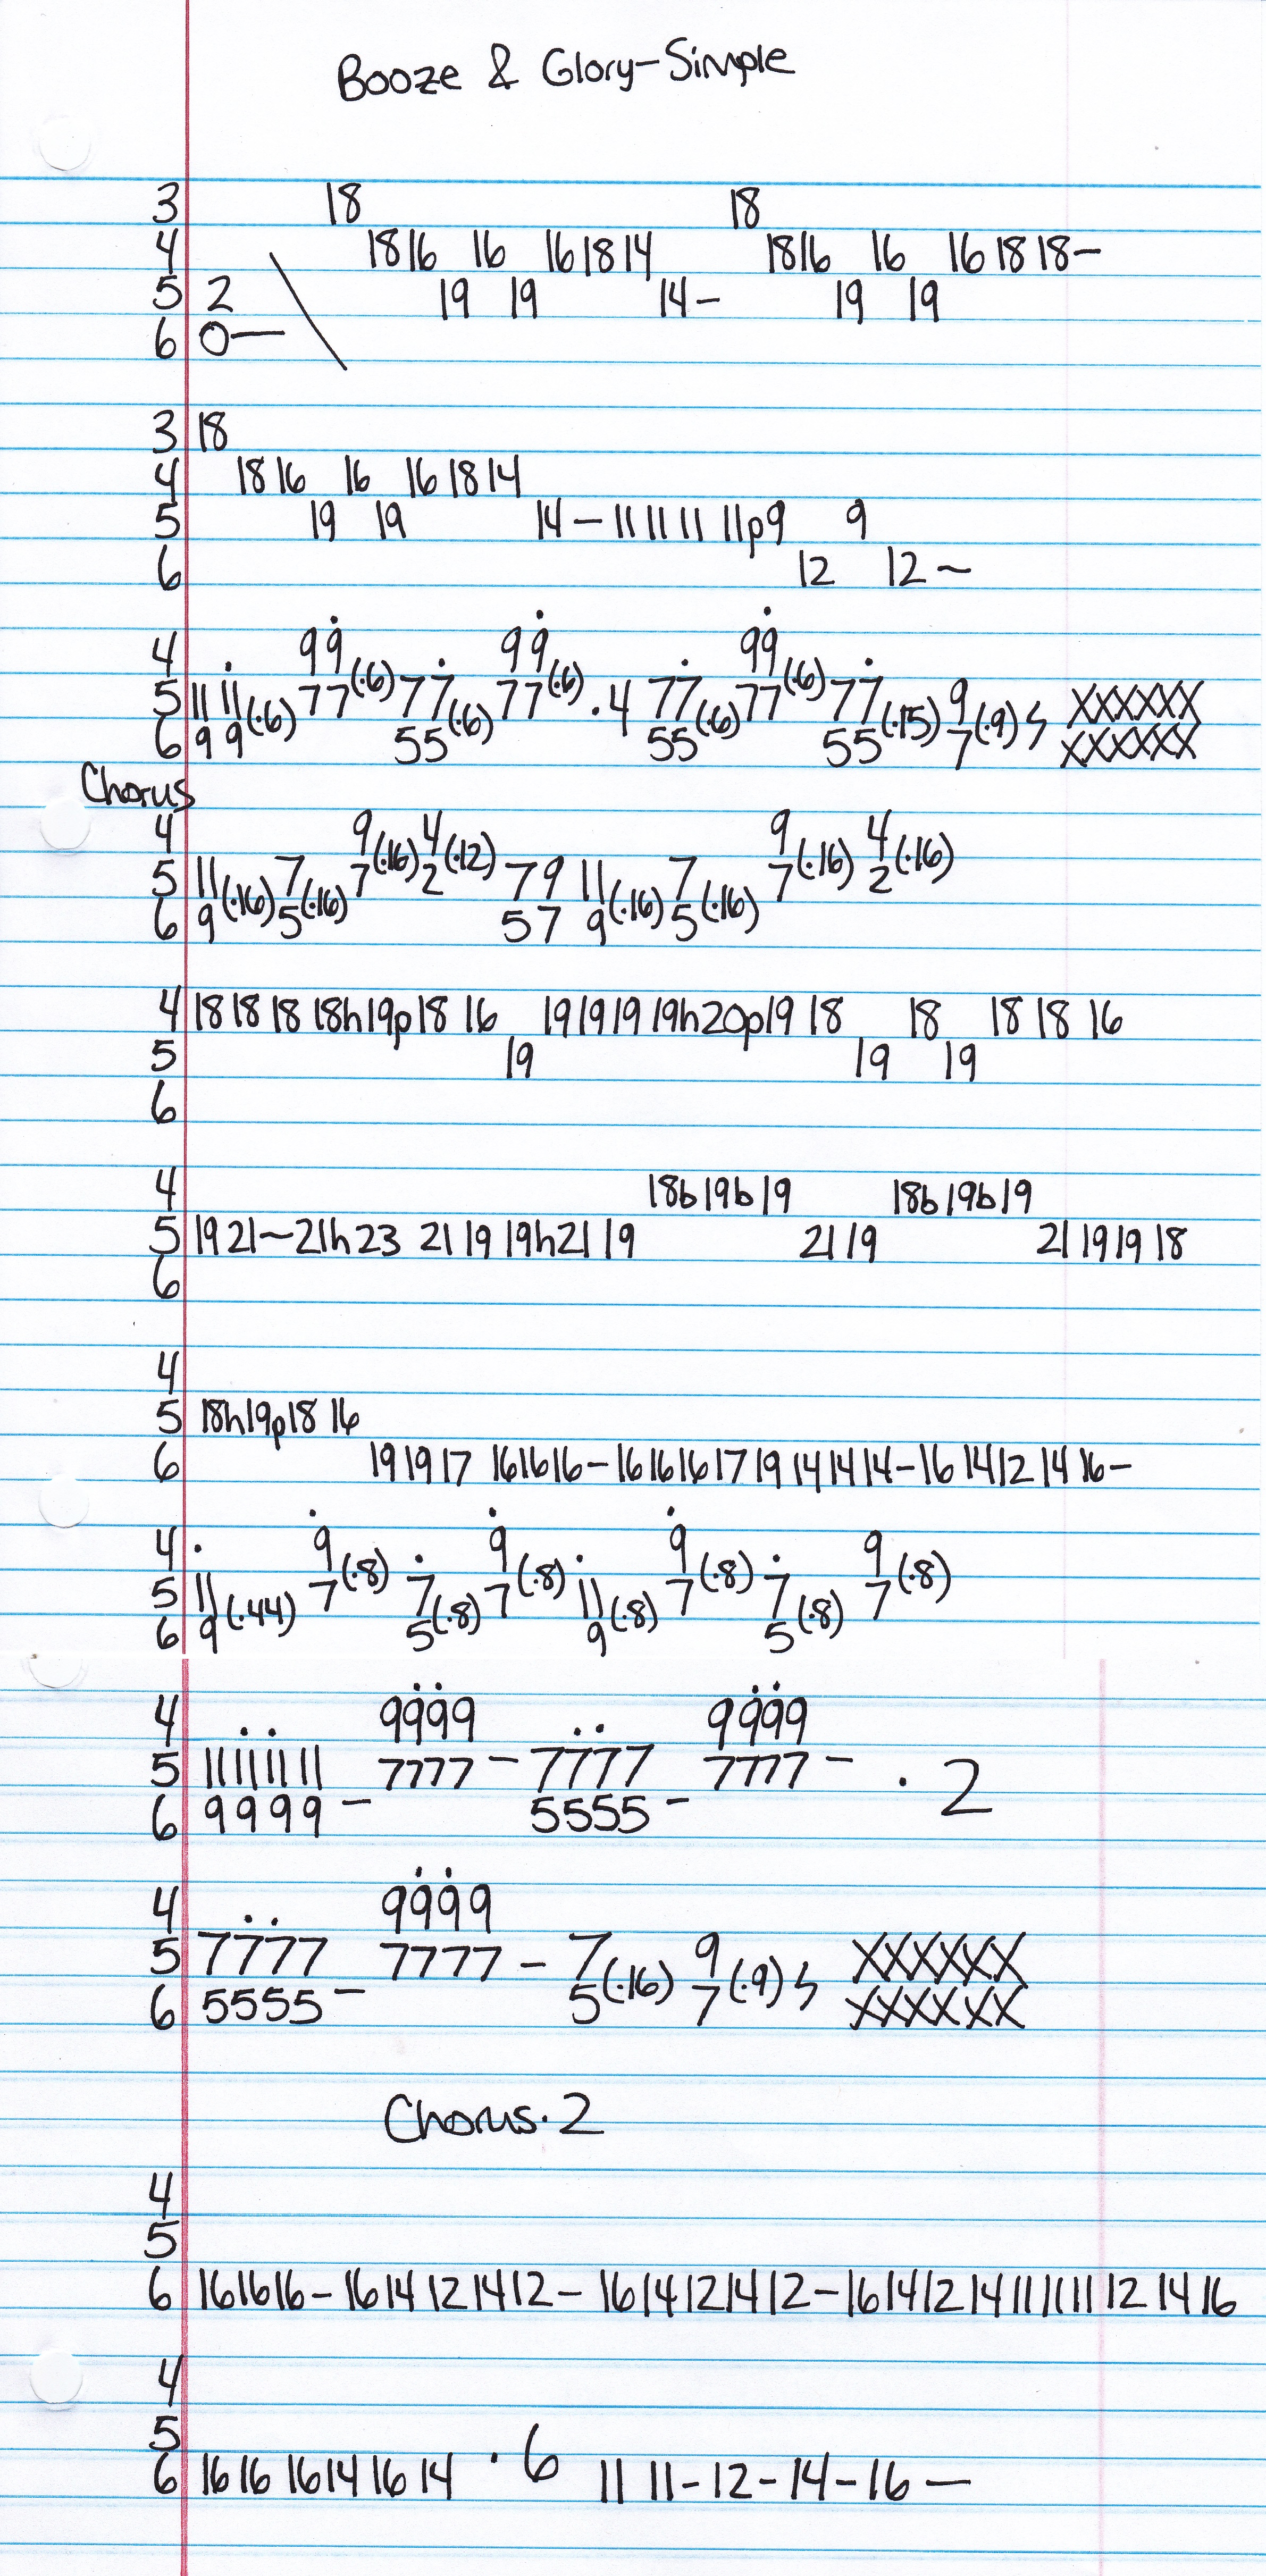 Booze & Glory-Simple
3 18 18
4 1816 16 161814 1816 16 16 18 18-
5 2 19 19 14- 19 19
6 0— \
3 18
4 18 16 16 16 18 14
5 19 19 14-11 11 11 11p9 9
6 12 12~
4 99 99 99
5 11 11 77(·6) 77 77(·6) ·4 77 77(·6) 77 9
6 9 9(·6) 55(·6) 55(·6) 55(·15) 7(·9) ϟ XXXXXX
XXXXXX
Chorus
4 9 4 9 4
5 11 7 7(·16) 2(·12) 7 9 11 7 7(·16) 2(·16)
6 9(·16) 5(·16) 5 7 9(·16) 5(·16)
4 18 18 18 18h19p18 16 19 19 19 19h20p19 18 18 18 18 16
5 19 19 19
6
4 18b19b19 18b19b19
5 19 21~21h23 21 19 19h21 19 21 19 21 19 19 18
6
4
5 18h19p18 16
6 19 19 17 16 16 16-16 16 16 17 19 14 14 14-16 14 12 14 16-
4 9 9 9 9
5 11 7(·8) 7 7(·8) 11 7(·8) 7 7(·8)
6 9(·44) 5(·8) 9(·8) 5(·8)
4 9999 9999
5 11 11 11 11 7777- 7777 7777- ·2
6 9999- 5555-
4 9999
5 7777 7777- 7 9 XXXXXX
6 5555- 5(·16) 7(·9) ϟ XXXXXX
Chorus·2
4
5
6 16 16 16-16 14 12 14 12-16 14 12 14 12-16 14 12 14 11 11 11 12 14 16
4
5
6 16 16 16 14 16 14 ·6 11 11-12-14-16—